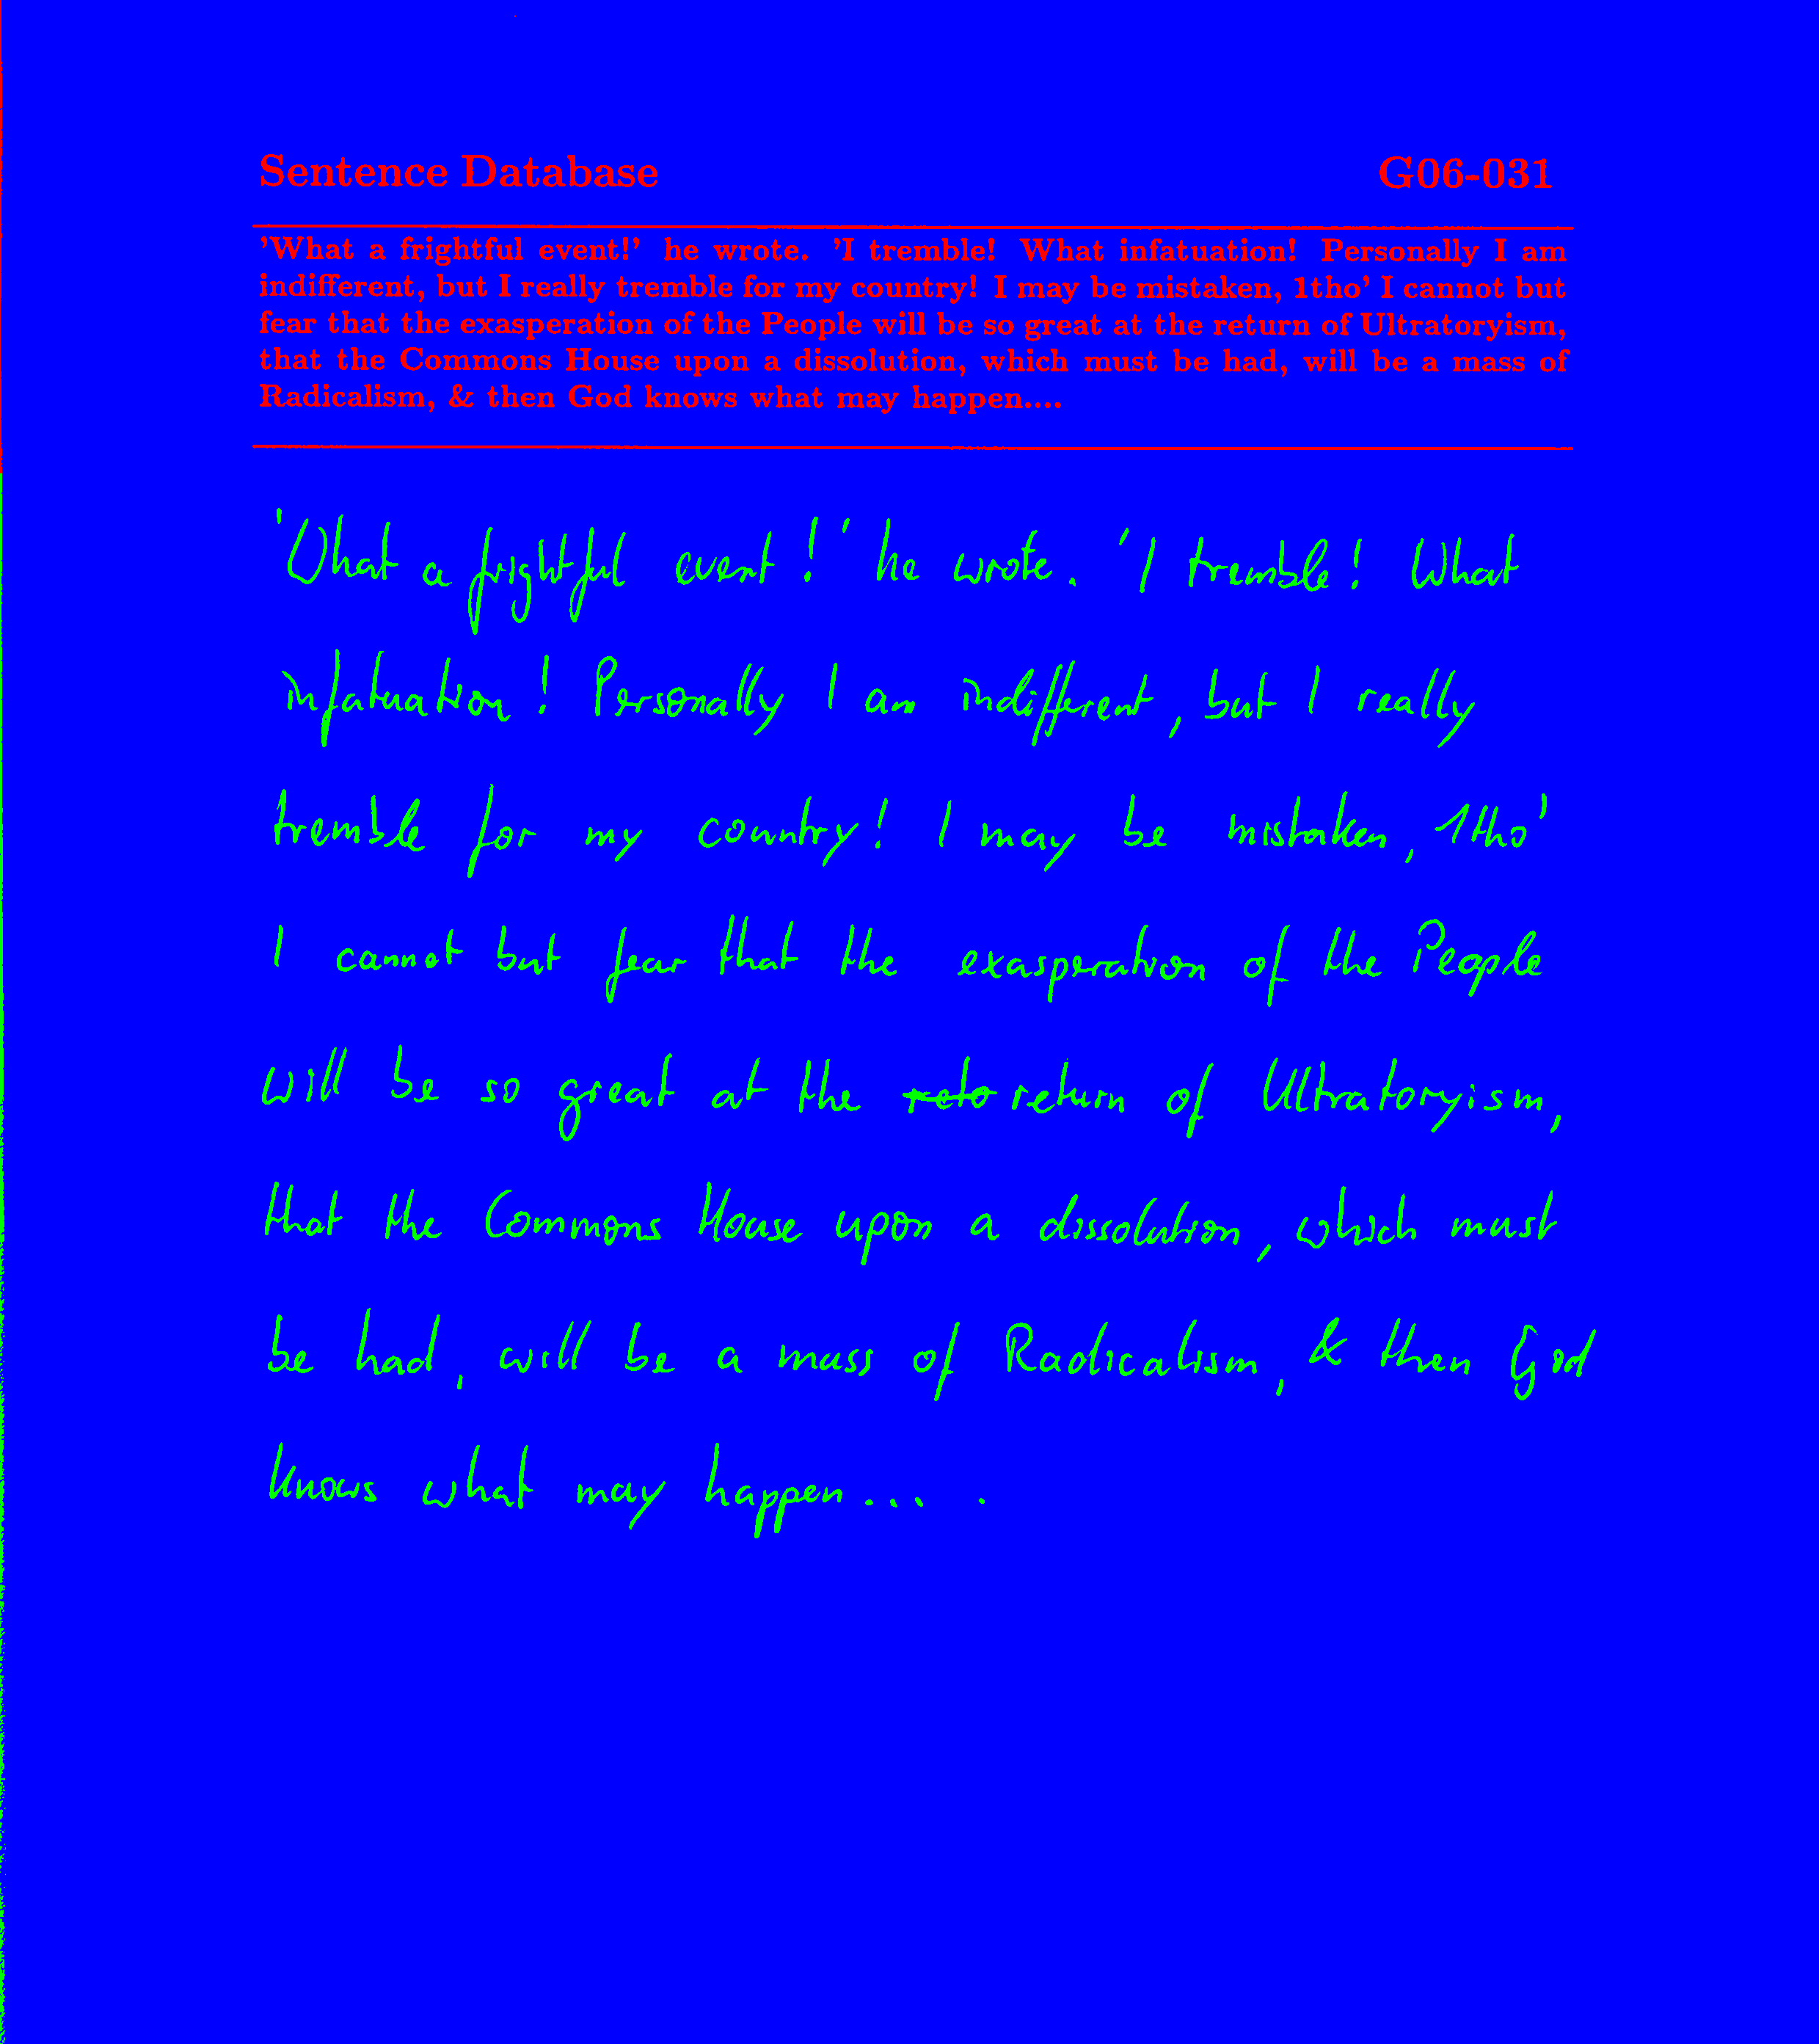 Sentence Database G06-031
'What a frightful event!' he wrote. 'I tremble! What infatuation! Personally I am
indifferent, but I really tremble for my country! I may be mistaken, 1tho' I cannot but
fear that the exasperation of the People will be so great at the return of Ultratoryism,
that the Commons House upon a dissolution, which must be had, will be a mass of
Radicalism, & then God knows what may happen....
'What a frightful event!' he wrote. 'I tremble! What
infatuation! Personally I am indifferent, but I really
tremble for my country! I may be mistaken, 1tho'
I cannot but fear that the exasperation of the People
will be so great at the reto return of Ultratoryism,
that the Commons House upon a dissolution, which must
be had, will be a mass of Radicalism, & then God
knows what may happen... .